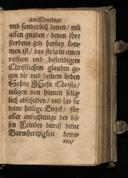 am Montage.
und sonderlich denen / mit
allen gnaden / denen ihre
sterbens zeit herbey kom-
men ist / das sie in einem
rechten und bestendigen
Christlichem glauben ge-
gen dir und deinem lieben
Sohne Jhesu Christo /
mügen von hinnen selig-
lich abscheiden / und las sie
deine heilige Engel / für
aller anfechtunge des bö-
sen Feindes durch deine
Barmhertzigkeit
ren /